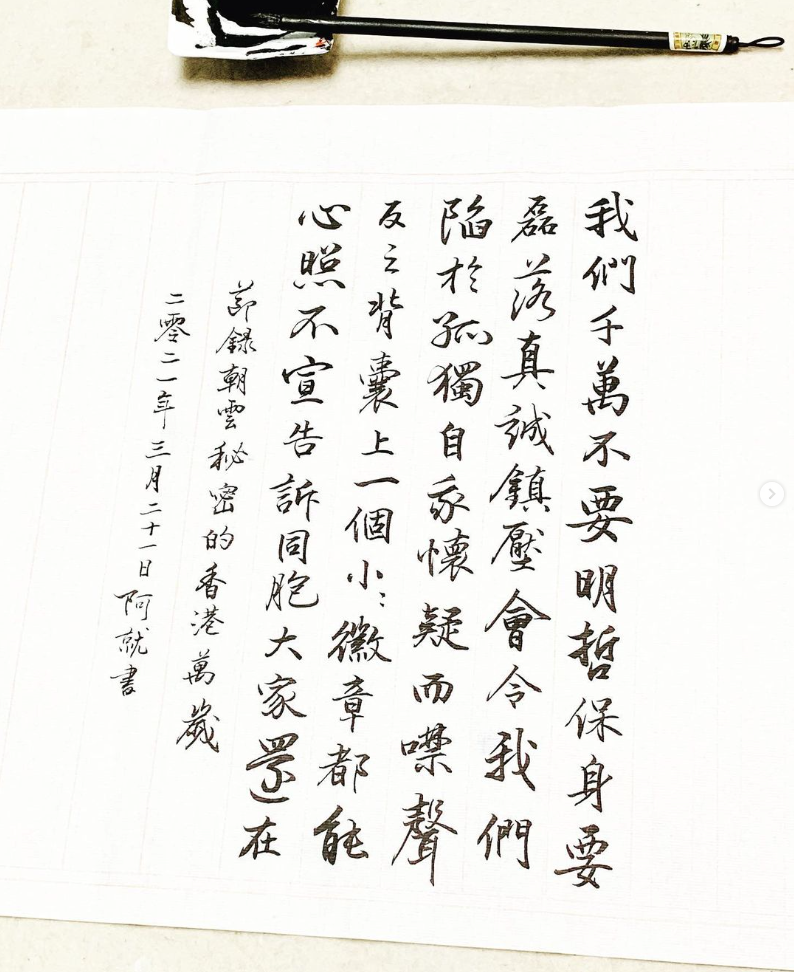 我們千萬不要明哲保身要
磊落真誠鎮壓會令我們
陷於孤獨自我懷疑而噤聲
反之背囊上一個小:徽章都能
心照不宣告訴同胞大家還在
節錄朝雲秘密的香港萬歲
二零二一年三月二十一日 阿就書